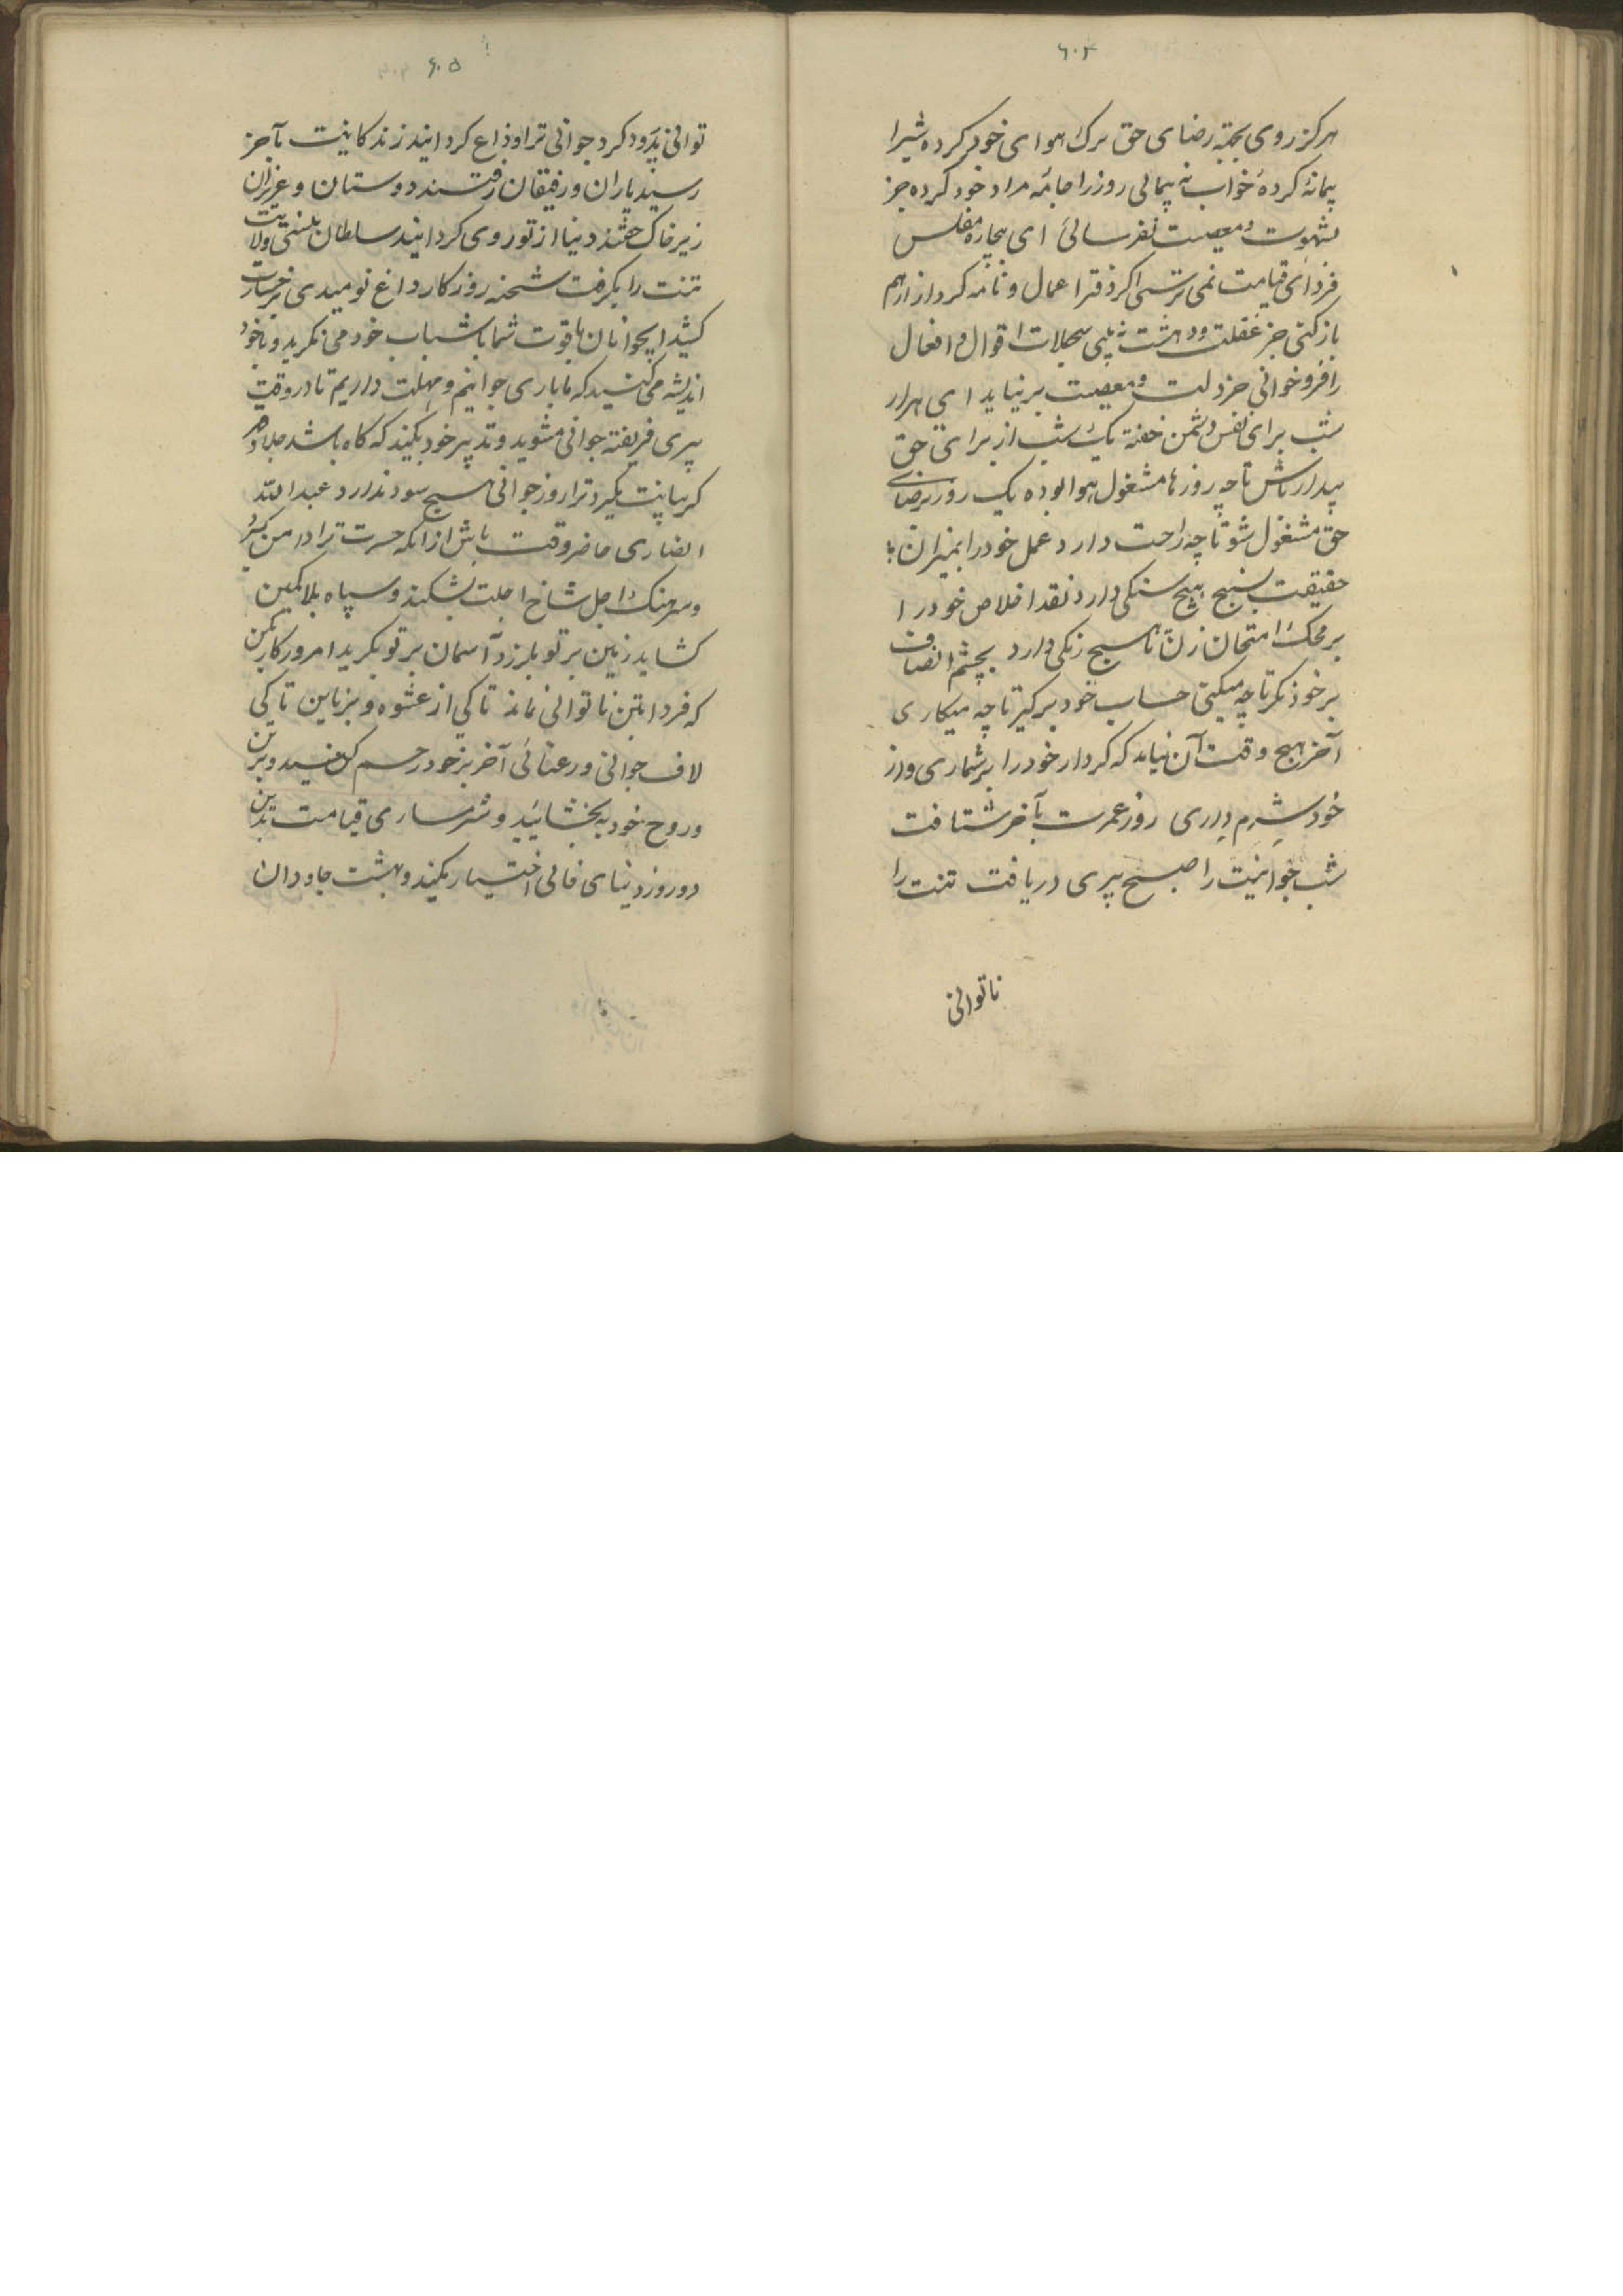 ۶۰۴
هرکز روی بجهة رضای حق ترک هوای خود کرده شبرا
پیمانهٔ کردهٔ خواب نه پیمائی روز را جامهٔ مراد خود کرده جز
بشهوت و معصیت نفرسائی ای بیچارهٔ مفلس
فردای قیامت نمی ترسی اکر دفتر اعمال و نامه کردار از هم
باز کنی جز غفلت و دهشت نه بینی سجلات اقوال و افعال
را فرو خوانی جز ذلت و معصیت بر نیاید ای هزار
شب برای نفس دشمن خفته یک شب از برای حق
بیدار باش تا چه روزها مشغول هوا بوده یک روز برضای
حق مشغول شو تا چه راحت دارد عمل خود را بمیزان
حقیقت بسنج هیچ سنکی دارد نقد اخلاص خود را
بر محک امتحان زن تا هیچ رنکی دارد بچشم انصاف
بر خود نکر تا چه میکنی حساب خود بر کیر تا چه میکاری
آخر هیچ وقت آن نیامد که کردار خود را بر شماری و از
خود شرم داری روز عمرت بآخر شتافت
شب جوانیت را صبح پیری دریافت تنت را
ناتوانی
۶۰۵
توانی بدرود کرد جوانی ترا وداع کردانید زندکانیت بآخر
رسید یاران و رفیقان رفتند دوستان و عزیزان
زیر خاک خفتند دنیا از تو روی کردانید سلطان نیستی ولایت
تنت را بکرفت شحنه روزکار داغ نومیدی بر رخسارت
کشید ای جوانان با قوت شما با شباب خود می نکرید و با خود
اندیشه می کنید که ما باری جوانیم و مهلت داریم تا در وقت
پیری فریفته جوانی مشوید و تدبیر خود بکنید که کاه باشد جلاد دهر
کریبانت بکیرد ترا روز جوانی هیچ سود ندارد عبدالله
انصاری حاضر وقت باش از آنکه حسرت ترا دامن کیرد
و سرهنک اجل شاخ املت بشکند و سپاه بلا کمین
کشاید زمین بر تو بلرزد آسمان بر تو بکرید امروز کار بکن
که فردا بتن ناتوانی نماند تا کی از عشوه و بزناین تا کی
لاف جوانی و رعنائی آخر بر خود رحم کنید و بر تن
و روح خود به بخشائید و شرمساری قیامت بدین
دو روز دنیای فانی اختیار مکنید و بهشت جاودان